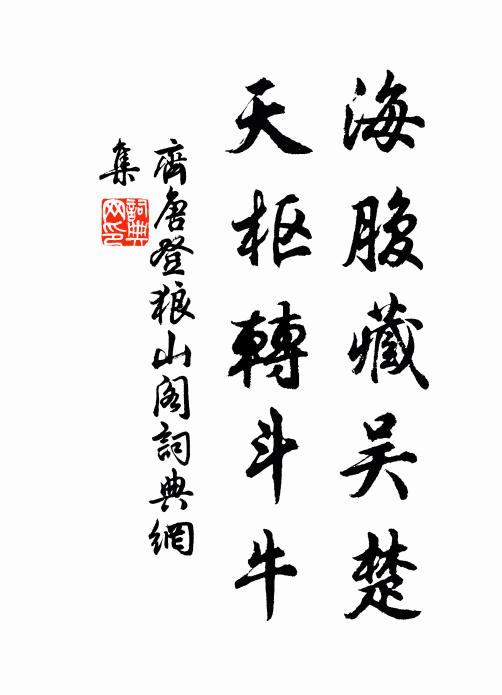 海腹藏吴楚
天枢轉斗牛
齊唐登狼山阁詞典網
集
詞典
网印